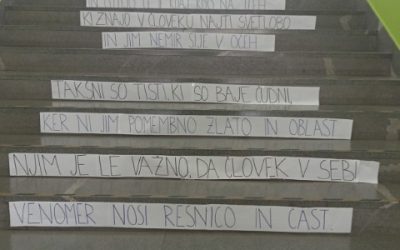 KI ZNAJO V ČLOVEKU NAJTI SVETLOBO
IN JIM NEMIR SIJE V OČEH
TAKŠNI SO TISTI, KI SO BAJE ČUDNI,
KER NI JIM POMEMBNO ZLATO IN OBLAST.
NJIM JE LE VAŽNO, DA ČLOVEK V SEBI
VENOMER NOSI RESNICO IN ČAST.